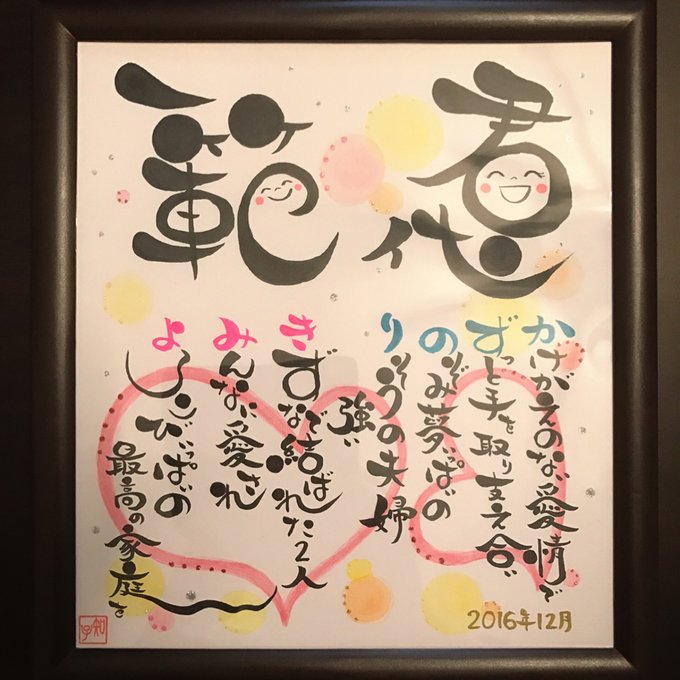 範
君代
かけがえのない愛情で
ずっと手を取り支え合い
のぞみ夢いっぱいの
りそうの夫婦
強い
きずなで結ばれた2人
みんなに愛され
よろこびいっぱいの
最高の家庭を
2016年12月
知子